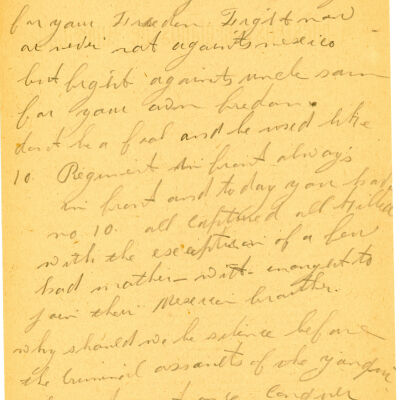 for your Freedon Fright now
or never not againts mexico
but fright againts uncle sam
for your own fredon.
dont be a fool and be used like
10. Regiment in front always
in front and today you had
no. 10. all captured all killed
with the exception of a few
had rather with to
join their Mexican brauther.
why should we be silence before
the Criminal assaults of the yanqui